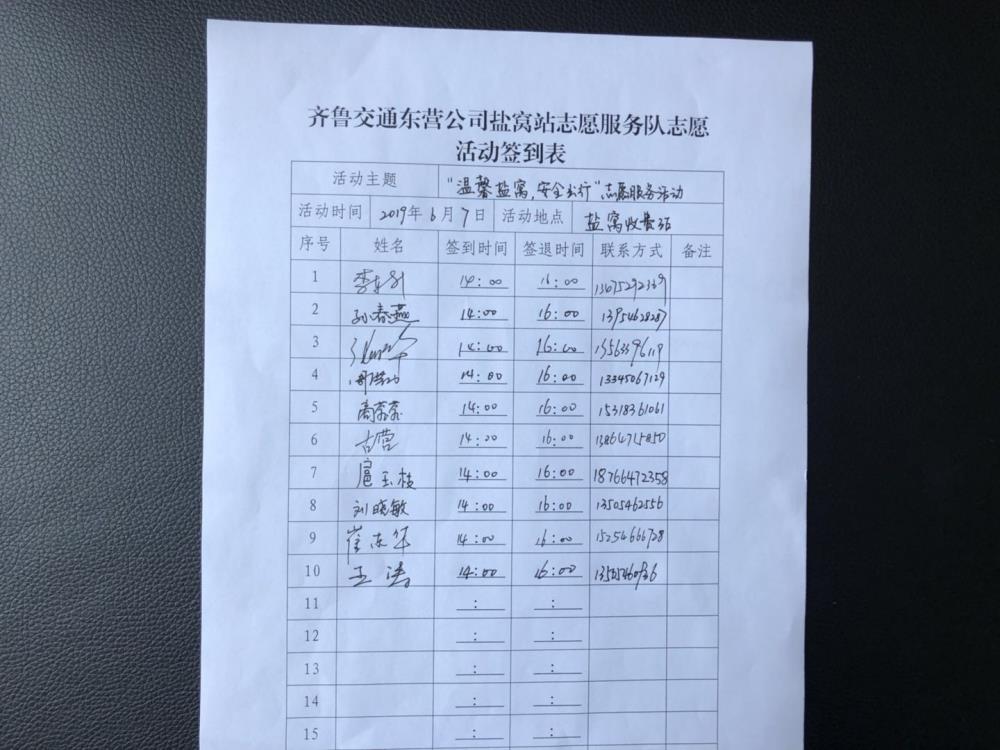 齐鲁交通东营公司盐窝站志愿服务队志愿
活动签到表
活动主题 “温馨盐窝,安全出行”志愿服务活动
活动时间 2019年6月7日 活动地点 盐窝收费站
序号 姓名 签到时间 签退时间 联系方式 备注
1 14:00 16:00
2 孙春燕 14:00 16:00
3 14:00 16:00
4 14:00 16:00 13345067129
5 14:00 16:00 15318361061
6 古营 14:00 16:00
7 扈玉枝 14:00 16:00 18766472358
8 刘晓敏 14:00 16:00 13505462556
9 崔东华 14:00 16:00 15254666728
10 王涛 14:00 16:00
11 : :
12 : :
13 : :
14 : :
15 : :